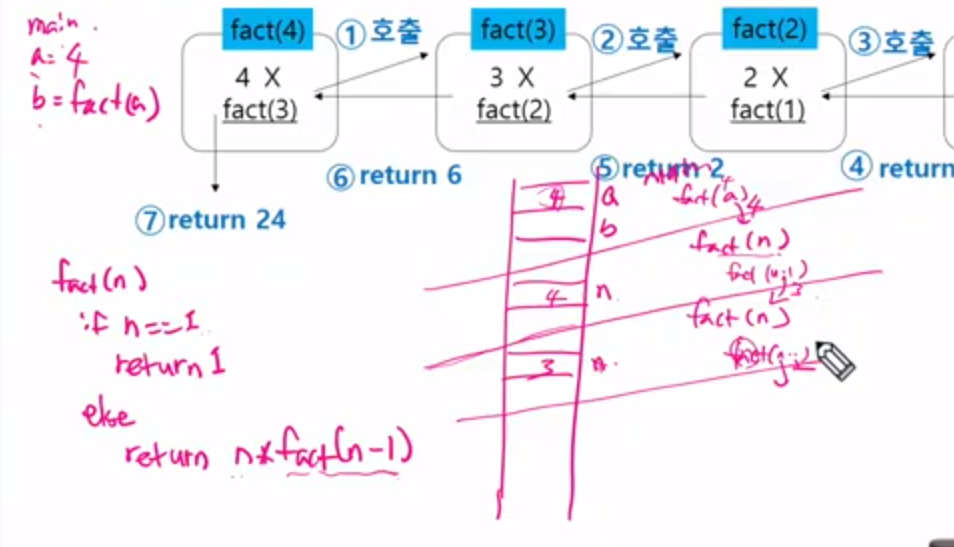 main
a = 4
b = fact(a)
fact(4)
①호출
fact(3)
②호출
fact(2)
③호출
4 X
fact(3)
3 X
fact(2)
2 X
fact(1)
⑥ return 6
⑤ return 2
④ return
⑦ return 24
fact(n)
if n==1
return 1
else
return n*fact(n-1)
4 a
b
4 n
3 n
main
fact(a)
4
fact(n)
fact(n-1)
3
fact(n)